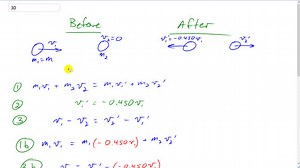 10
Before
After
v₁ v₂=0 v₁'=-0.450v₁ v₂'
m₁=m m₂
① m₁v₁ + m₂v₂ = m₁v₁' + m₂v₂'
② v₁' = -0.450v₁
③ v₁ - v₂ = v₂' - v₁'
1b m₁v₁ = m₁(-0.450v₁) + m₂v₂'